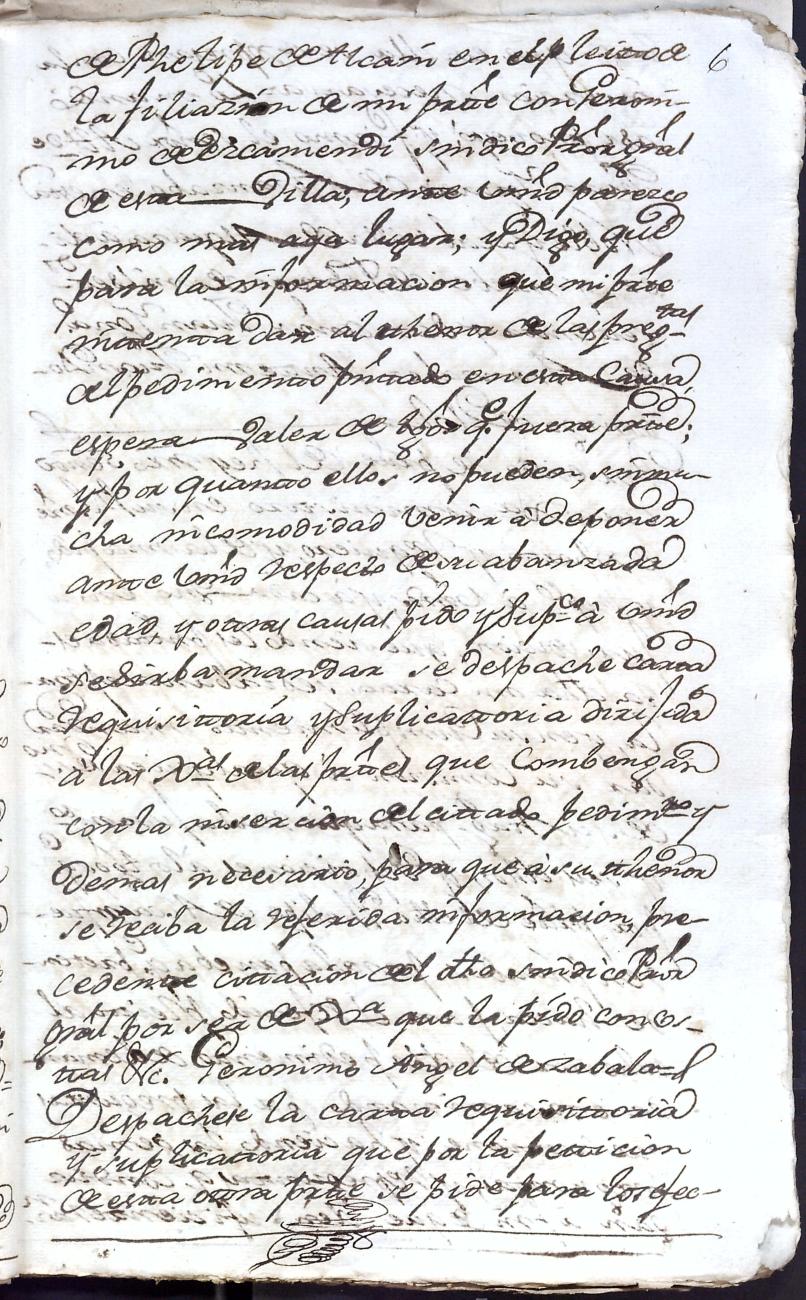 de Phelipe de Alcaiñ en el pleito de 6
la filiazión de mi prte con Geroni-
mo de Bicamendi sindico Pror gral
de esta Villa, ante Vmd parezco
como mas aya lugar; y Digo, que
para la informacion que mi prte
intenta dar al thenor de las pregtas
del pedimento pntado en esta Causa,
espera Valer de tgos q.e fuera prte;
y por quanto ellos no pueden, sin mu-
cha incomodidad Venir à deponer
ante Vmd respecto de su abanzada
edad, y otras causas pido y Supco à Vmd
se sirba mandar se despache carta
requisittoria y Suplicattoria dirijida
à las Xas de las prtes que Combengan
con la insercion del cittado pedimto y
Demas necesario, para que à su thenor
se reciba la referida informacion, pre-
cedente cittacion del dho sindico Pror
gral por ser de Xa que la pido con cos-
ttas &c. Geronimo Angel de Zabala=
Despachese la carta requisittoria
y suplicattoria que por la petticion
de esta otra prte se pide para los efec-